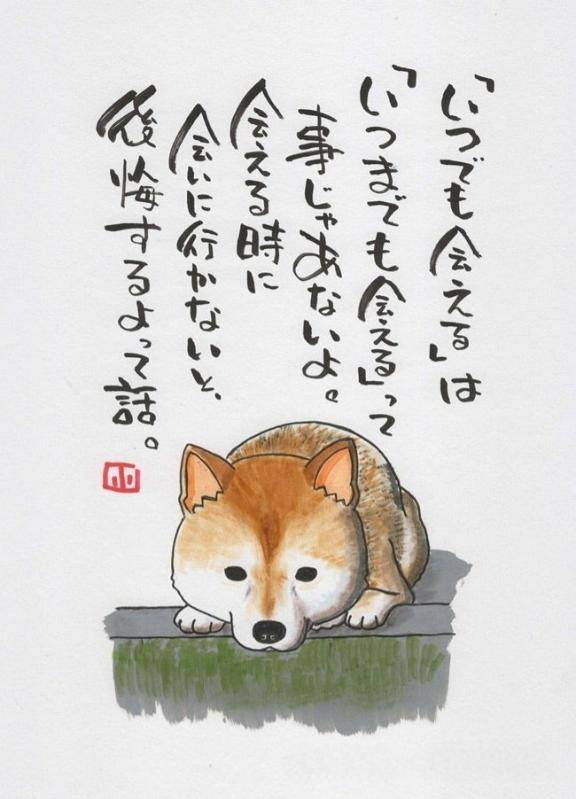 「いつでも会える」は
「いつまでも会える」って
事じゃあないよ。
会える時に
会いに行かないと、
後悔するよって話。